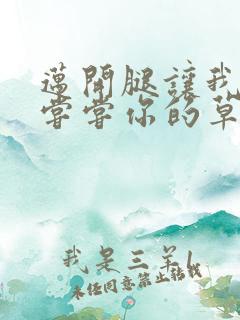 邁開腿讓我
嘗嘗你的草
我是三羊l
未经同意禁止转载